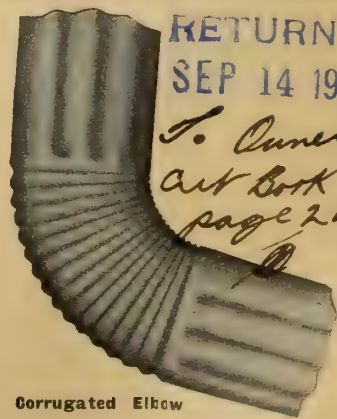 RETURN
SEP 14 19
To Owner
Cut Book
page 2
Corrugated Elbow